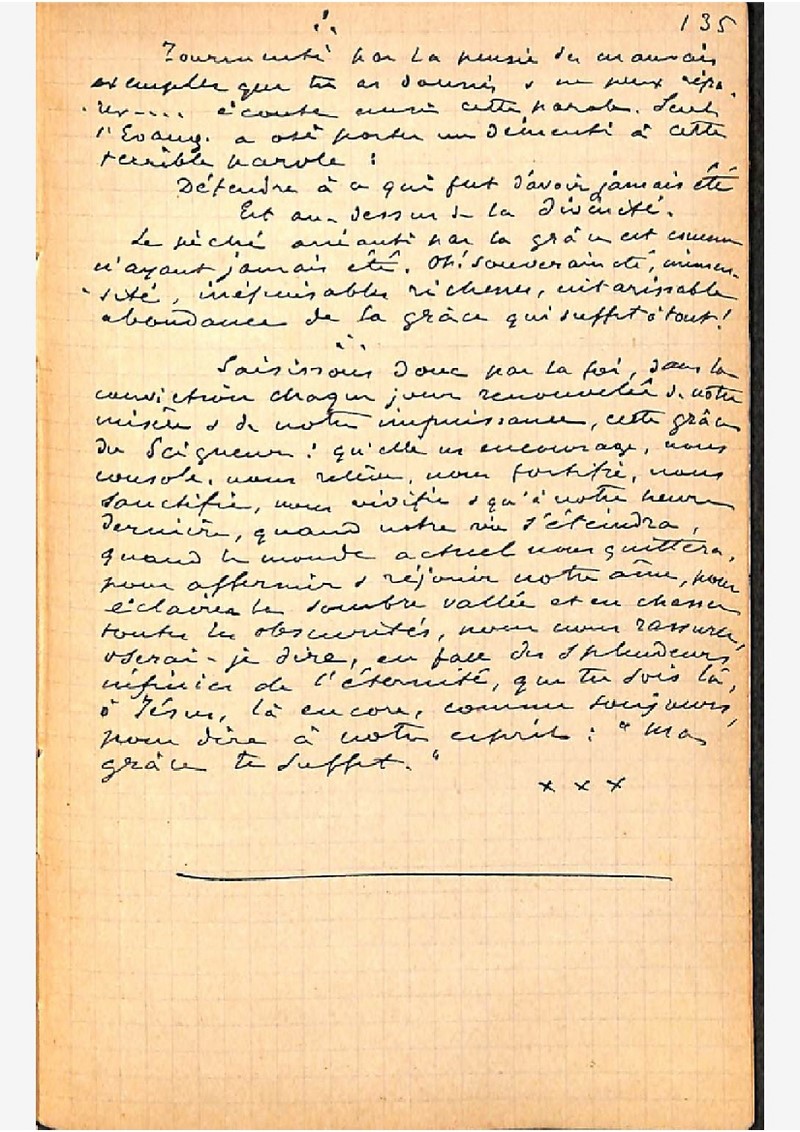 135
Tourmenté par la pensée des mauvais
exemples que tu as donnés & ne peux répa-
rer.... écoute aussi cette parole. Seul
l'Evang. a osé porter un démenti à cette
terrible parole :
Défendre à ce qui fut d'avoir jamais été
Est au-dessus de la divinité.
Le péché anéanti par la grâce est comme
n'ayant jamais été. Oh! souveraineté, immen-
sité, inépuisables richesses, intarissable
abondance de la grâce qui suffit à tout!
Saisissons donc par la foi, dans la
conviction chaque jour renouvelée de notre
misère & de notre impuissance, cette grâce
du Seigneur : qu'elle nous encourage, nous
console, nous relève, nous fortifie, nous
sanctifie, nous vivifie & qu'à notre heure
dernière, quand notre vie s'éteindra,
quand le monde actuel nous quittera,
pour affermir & réjouir notre âme, pour
éclairer la sombre vallée et en chasser
toutes les obscurités, pour nous rassurer,
oserai-je dire, en face des splendeurs
infinies de l'éternité, que tu sois là,
ô Jésus, là encore, comme toujours,
pour dire à notre esprit : "Ma
grâce te suffit."
x x x